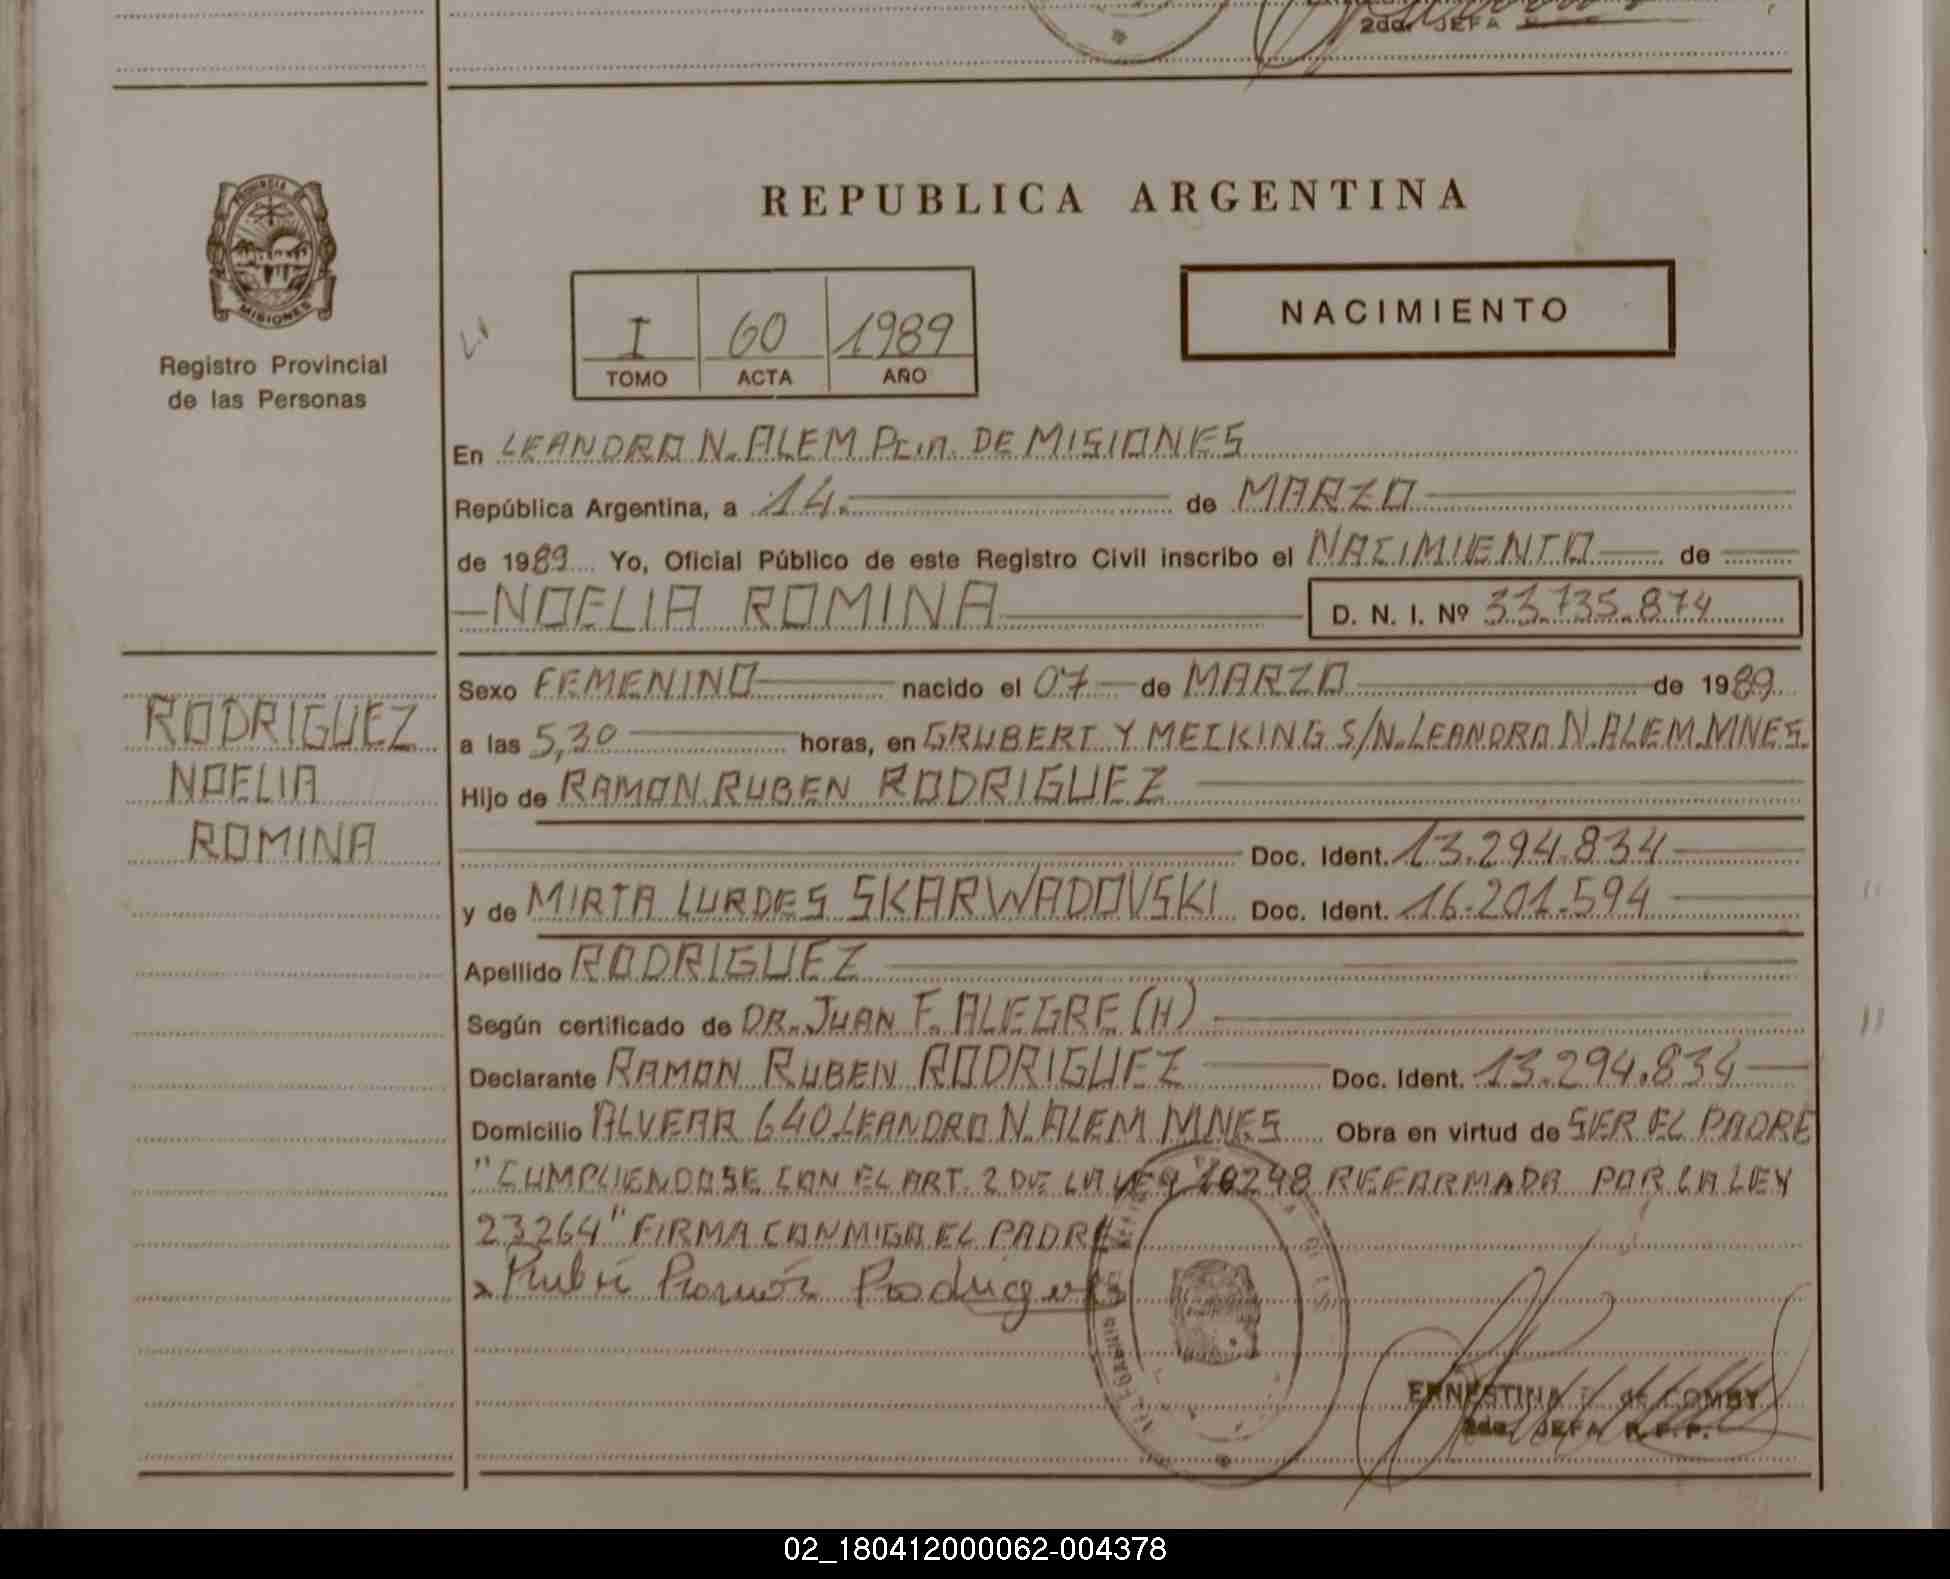 2da. JEFA
PROVINCIA DE
MISIONES
Registro Provincial
de las Personas
REPUBLICA ARGENTINA
NACIMIENTO
I 60 1989
TOMO ACTA AÑO
En LEANDRO N. ALEM Pcia. DE MISIONES
República Argentina, a 14. de MARZO
de 1989 Yo, Oficial Público de este Registro Civil inscribo el NACIMIENTO de
NOELIA ROMINA D. N. I. Nº 33.735.874
RODRIGUEZ
NOELIA
ROMINA
Sexo FEMENINO nacido el 07 de MARZO de 1989
a las 5,30 horas, en GRUBERT Y MECKING S/N. LEANDRO N. ALEM. MNES.
Hijo de RAMON RUBEN RODRIGUEZ
Doc. Ident. 13.294.834
y de MIRTA LURDES SKARWADOVSKI Doc. Ident. 16.201.594
Apellido RODRIGUEZ
Según certificado de DR. JUAN F. ALEGRE (H)
Declarante RAMON RUBEN RODRIGUEZ Doc. Ident. 13.294.834
Domicilio ALVEAR 640 LEANDRO N. ALEM MNES Obra en virtud de SER EL PADRE
"CUMPLIENDOSE CON EL ART. 2 DE LA LEY 10248 REFORMADA POR LA LEY
23264" FIRMA CONMIGO EL PADRE
Rubén Ramón Rodriguez
ERNESTINA de COMBY
2da. JEFA R.P.P.
02_180412000062-004378